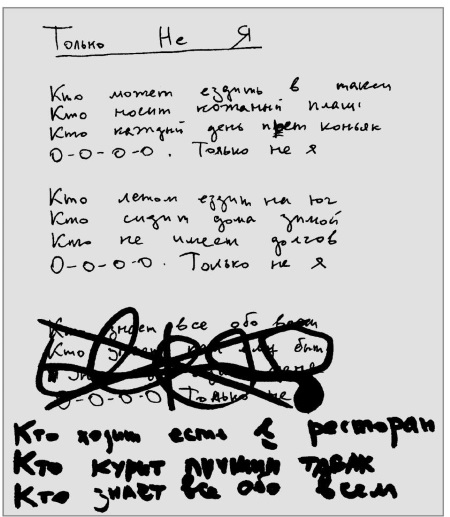 Только Не Я
Кто может ездить в такси
Кто носит кожаный плащ
Кто каждый день пьет коньяк
О-о-о-о. Только не я
Кто летом ездит на юг
Кто сидит дома зимой
Кто не имеет долгов
О-о-о-о. Только не я
Кто знает все обо всем
Кто знает быть
О-о-о-о Только не
Кто ходит есть в ресторан
Кто курит лучший табак
Кто знает все обо всем